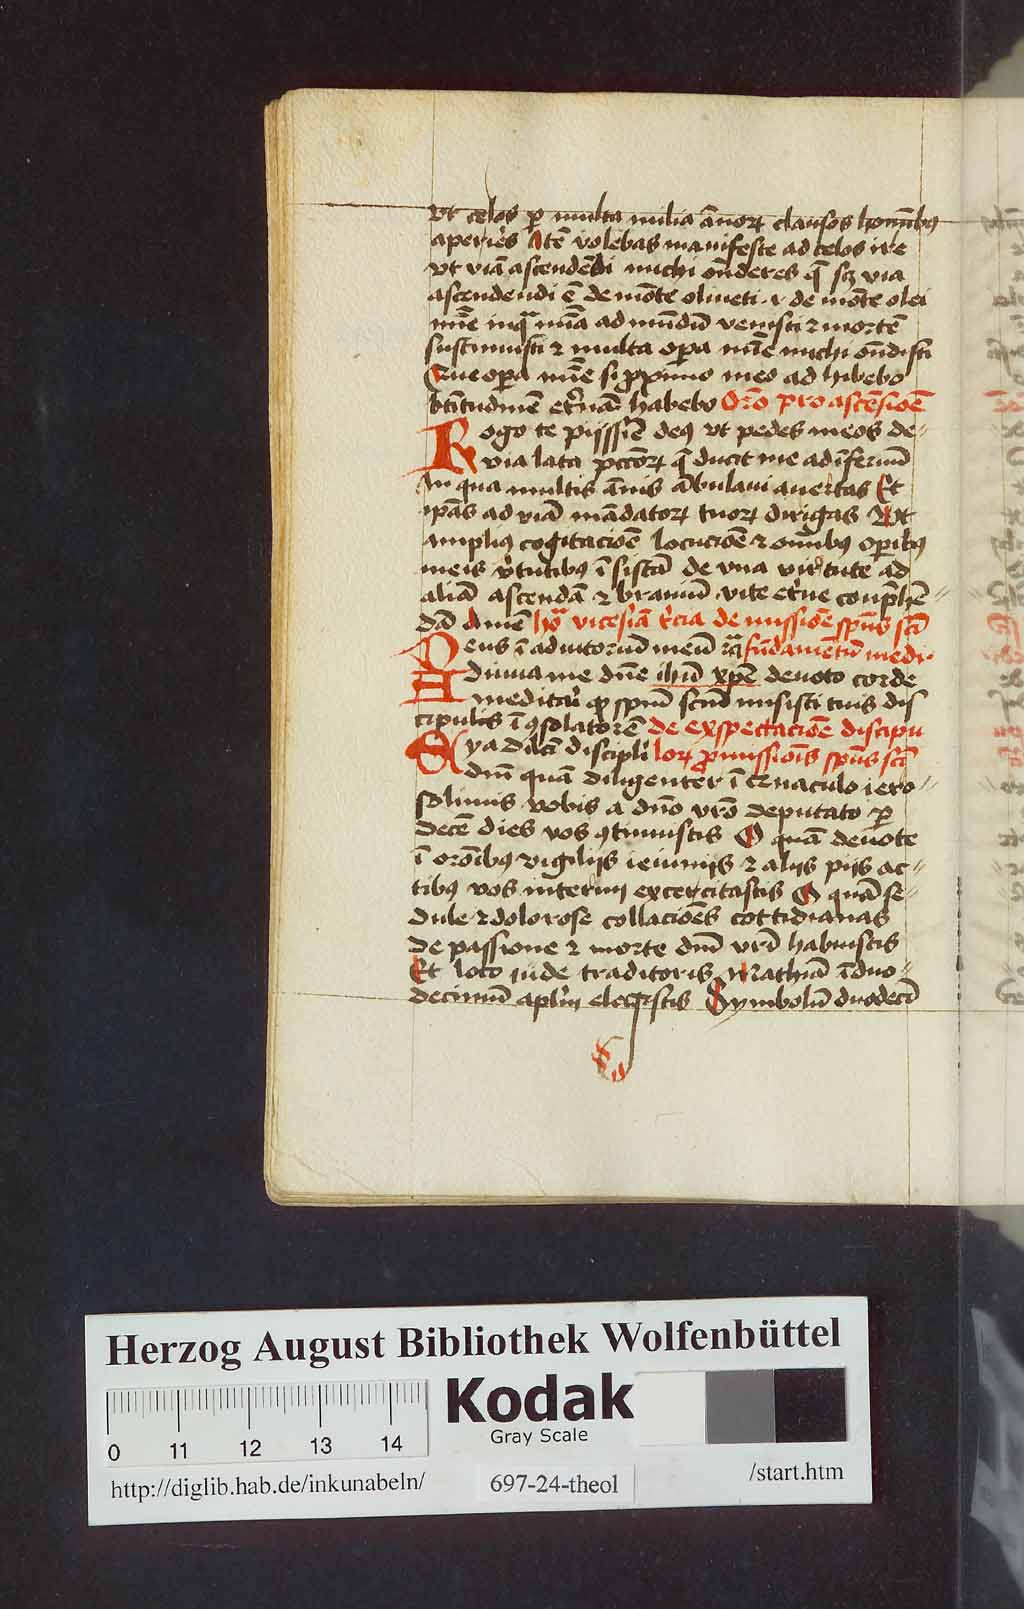 vt celos ꝑ multa milia ānoꝝ clausos homībꝰ
aperies Itē volebas manifeste ad celos ire
vt viā ascendēdi michi on̄deres q̄ scꝫ via
ascendendi ē de mōte oliueti ⁊ de mōte olei
mīe in qua nūa ad mūdū venisti ⁊ mortē
sustinuisti ⁊ multa oꝑa mīe michi on̄disti
Que oꝑa mīe si ꝓximo meo ad hibebo
btītudinē et̄nā habebo Orō pro ascēsiōe
Rogo te pijssīe deꝰ vt pedes meos de⸗
via lata pccōꝝ q̄ ducit me ad īfernū
In qua multis ānis ābulaui auertas Et
ip̄as ad viā mādatoꝝ tuoꝝ dirigas Vt
ampliꝰ cogitaciōe locuciōe ⁊ om̄ibꝰ oꝑibꝰ
meis v̄tutibꝰ ī sistā de vna virtute ad
aliā ascendā ⁊ brauiū vite et̄ne conp̄hē⸗
dā Amē hᷓ vicesīa t̄cia de missiōe spūs scī
Deus ī adiutoriū meū ⁊ᷓ fūdamētū medi⸗
Adiuua me dn̄e ihū xp̄e deuoto corde
meditari ꝙ spm̄ scm̄ misisti tuis dis
cipulis ī ꝯsolatorē de exspectaciōe discipu
Eya dilcī discipli loꝝ ꝓmissiōis spūs scī
dn̄i quā diligenter ī cenaculo iero⸗
solimis vobis a dn̄o vr̄o deputato ꝑ
decē dies vos ꝯtinuistis O quā deuote
ī orōnibꝰ vigilijs ieiunijs ⁊ alijs pijs ac⸗
tibꝰ vos interim excercitastis O quā se⸗
dule ⁊ dolorose collaciōes cottidianas
de passione ⁊ morte dn̄i vr̄i habuistis
Et loco iude traditoris Mathiā ī duo⸗
decimū aplm̄ elegistis Symbolū duodecī
Herzog August Bibliothek Wolfenbüttel
Kodak
Gray Scale
0 11 12 13 14
http://diglib.hab.de/inkunabeln/
697-24-theol
/start.htm